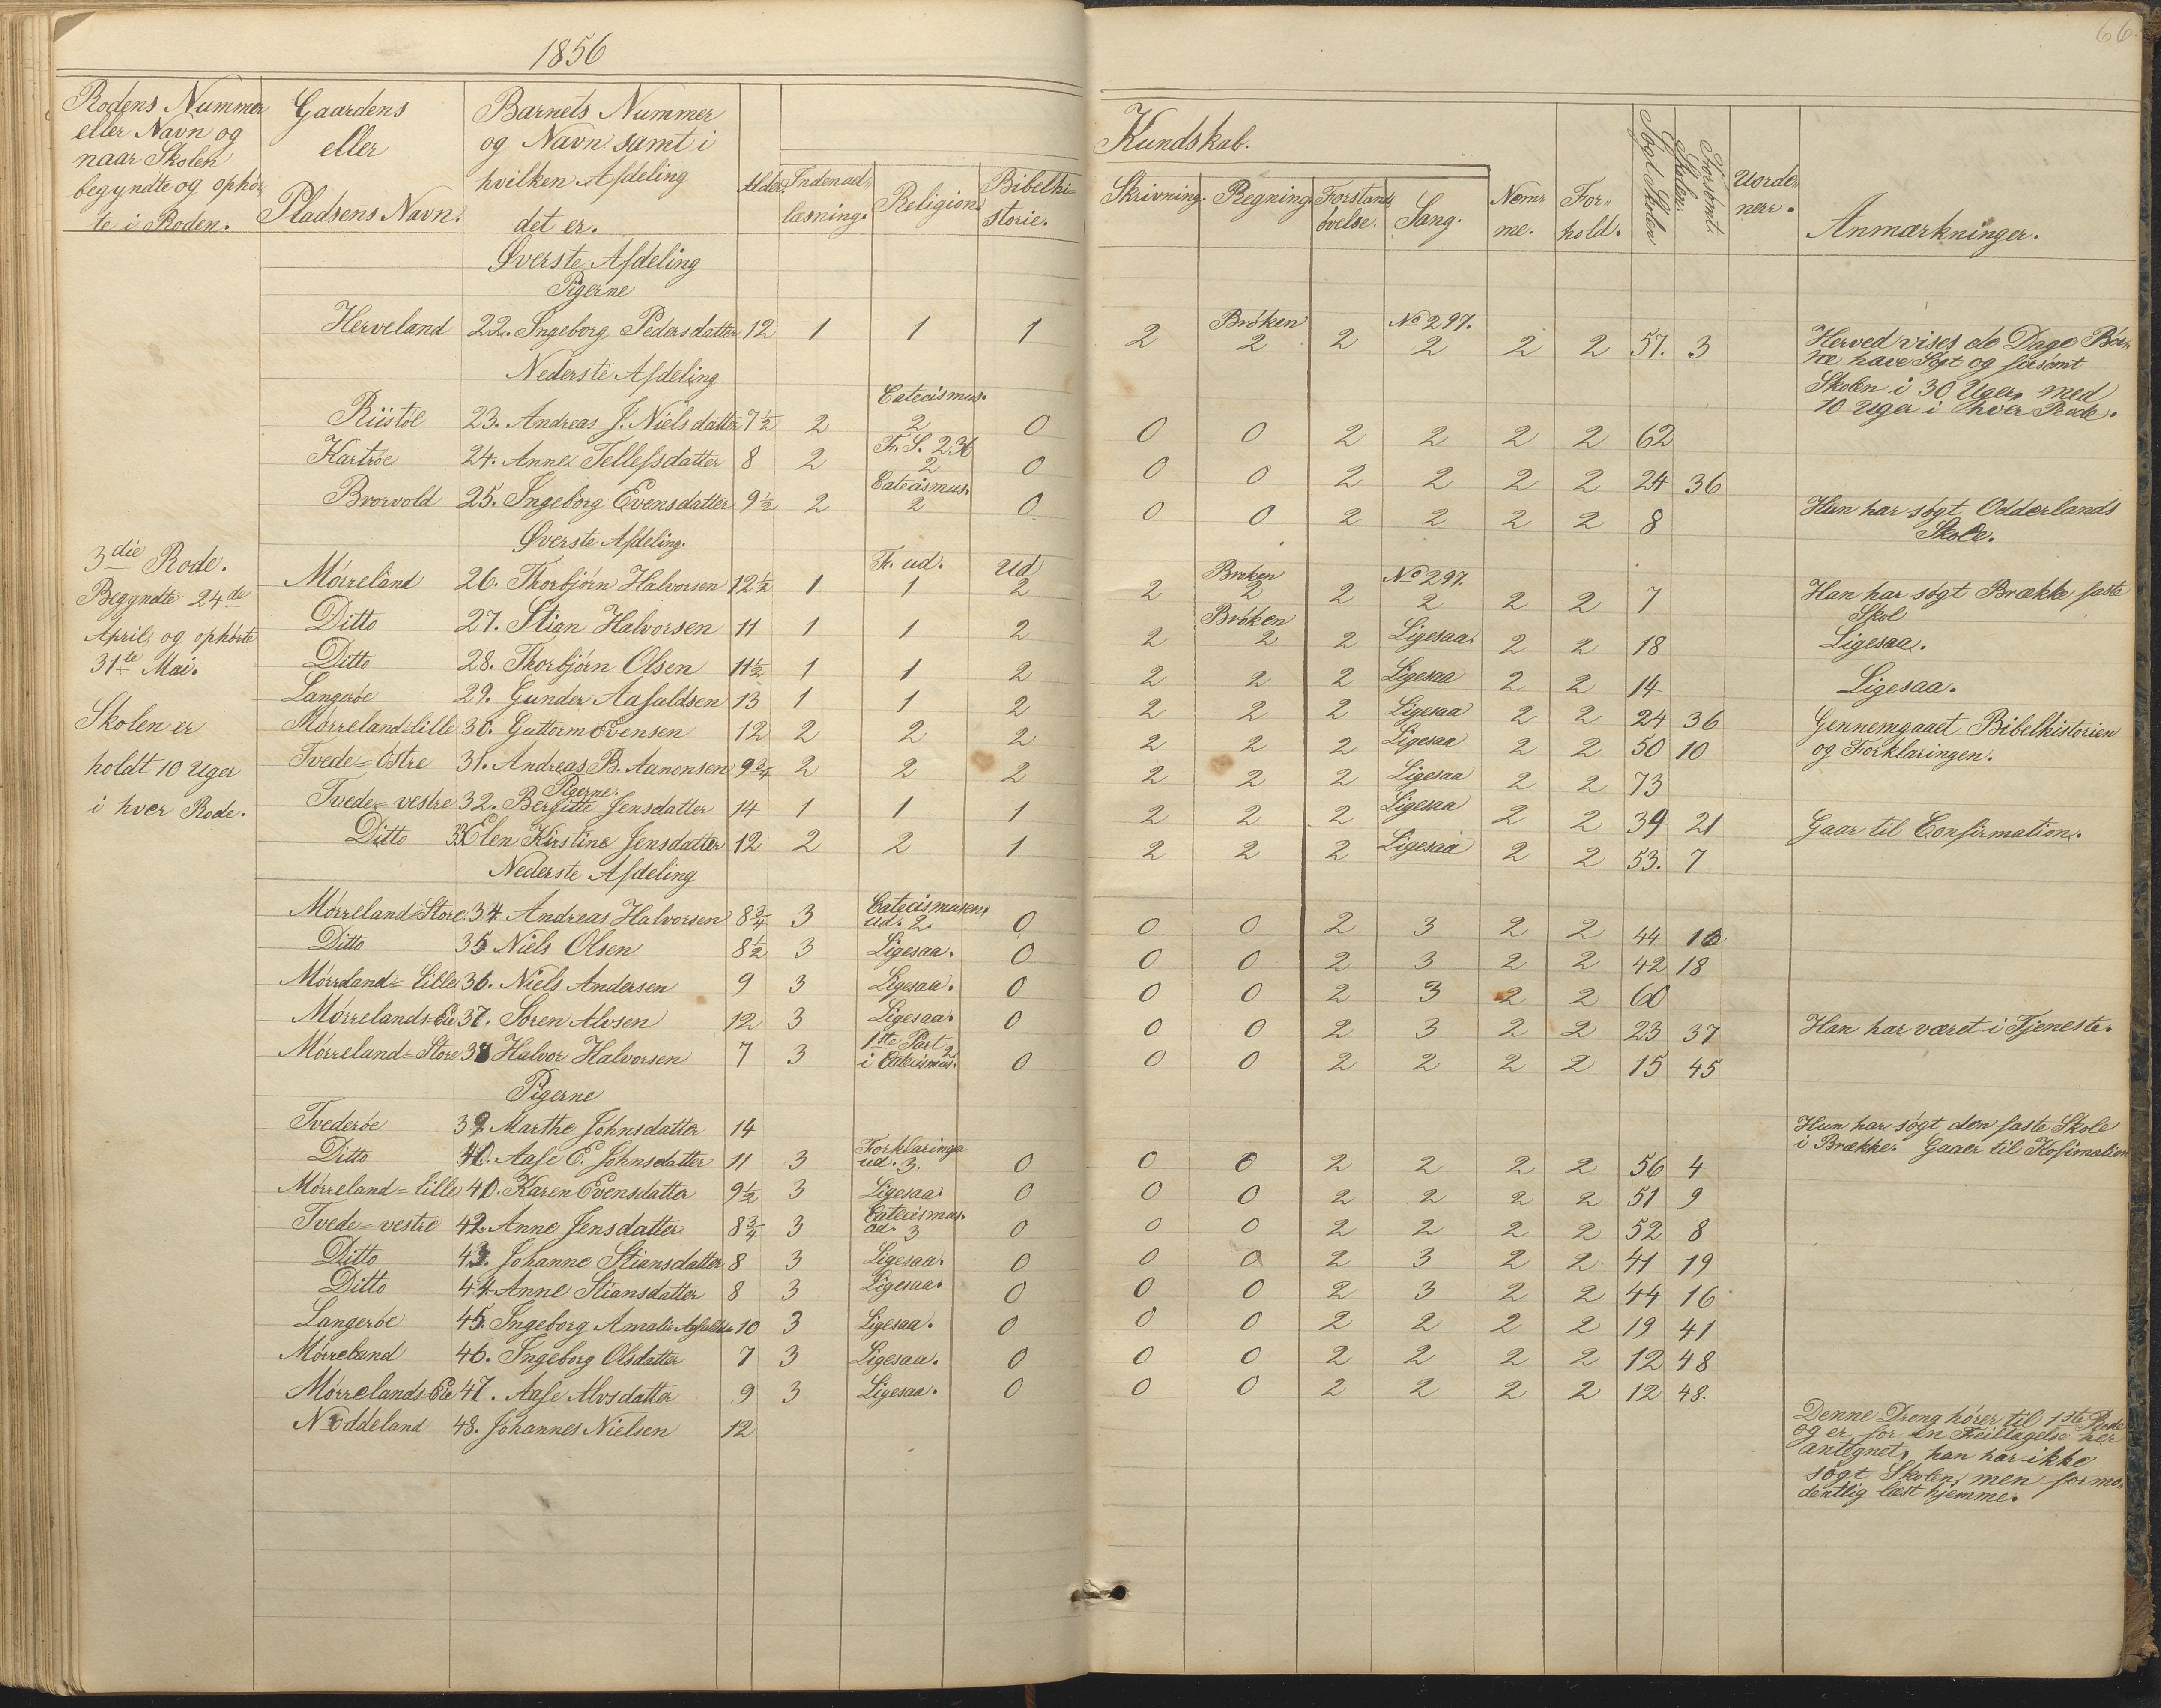 1856
66
Rodens Nummer
eller Navn og
naar Skolen
begyndte og ophör
te i Roden.
Gaardens
eller
Pladsens Navn.
Barnets Nummer
og Navn samt i
hvilken Afdeling
det er.
Alder
Kundskab.
Indenad-
læsning.
Religion.
Bibelhi-
storie.
Skrivning.
Regning.
Forstands
övelse.
Sang.
Nem-
me.
For-
hold.
Søgt Skolen
Forsømt
Skolen.
Uorde
ner.
Anmærkninger.
Øverste Afdeling
Pigerne
Herveland 22. Ingeborg Pedersdatter 12 1 1 1 2 Bröken 2 2 No 297. 2 2 2 57. 3 Herved vises de Dage Bör-
ne have Søgt og forsömt
Skolen i 30 Uger, med
10 Uger i hver Rode.
Nederste Afdeling
Riistöl 23. Andreas J. Nielsdatter 7½ 2 Catecismus. 2 0 0 0 2 2 2 2 62
Kartröe 24. Anne Tellefsdatter 8 2 Fr. S. 236 2 0 0 0 2 2 2 2 24 36
Brorvold 25. Ingeborg Evensdatter 9½ 2 Catecismus. 2 0 0 0 2 2 2 2 8 Hun har søgt Odderlands
Skole.
Øverste Afdeling.
3die Rode.
Begyndte 24de
April og ophörte
31te Mai.
Skolen er
holdt 10 Uger
i hver Rode.
Mörreland 26. Thorbjörn Halvorsen 12½ 1 Fr. ud. 1 ud 2 2 Bröken 2 2 No 297. 2 2 2 7 Han har søgt Brække faste
Skol
Ditto 27. Stian Halvorsen 11 1 1 2 2 Bröken 2 2 Ligesaa. 2 2 18 Ligesaa.
Ditto 28. Thorbjörn Olsen 11½ 1 1 2 2 2 2 Ligesaa 2 2 14 Ligesaa.
Langeröe 29. Gunder Aasuldsen 13 1 1 2 2 2 2 Ligesaa 2 2 24 36 Gennemgaaet Bibelhistorien
Mörreland lille 30. Guttorm Evensen 12 2 2 2 2 2 2 Ligesaa 2 2 50 10 og Forklaringen.
Tvede=Östre 31. Andreas B. Aanonsen 9¾ 2 2 2 2 2 2 Ligesaa 2 2 73
Pigerne.
Tvede=vestre 32. Bergitte Jensdatter 14 1 1 1 2 2 2 Ligesaa 2 2 39 21 Gaar til Confirmation.
Ditto 33 Elen Kirstine Jensdatter 12 2 2 1 2 2 2 Ligesaa 2 2 53. 7
Nederste Afdeling
Mörreland Store. 34. Andreas Halvorsen 8¾ 3 Catecismusen. ud. 2. 0 0 0 2 3 2 2 44 16
Ditto 35 Niels Olsen 8½ 3 Ligesaa. 0 0 0 2 3 2 2 42 18
Mörreland=lille 36. Niels Andersen 9 3 Ligesaa. 0 0 0 2 3 2 2 60
Mörrelands=Eie 37. Sören Alvsen 12 3 Ligesaa. 0 0 0 2 3 2 2 23 37 Han har været i Tjeneste.
Mörreland=Store 38 Halvor Halvorsen 7 3 1ste Part
i Catecismus. 2 0 0 0 2 2 2 2 15 45
Pigerne
Tvederöe 39. Marthe Johnsdatter 14 Hun har søgt den faste Skole
i Brække. Gaaer til Kofirmation
Ditto 40. Aase E. Johnsdatter 11 3 Forklaringa ud. 3. 0 0 0 2 2 2 2 56 4
Mörreland=lille 41. Karen Evensdatter 9½ 3 Ligesaa. 0 0 0 2 2 2 2 51 9
Tvede=vestre 42. Anne Jensdatter 8¾ 3 Catecismus. ud. 3 0 0 0 2 2 2 2 52 8
Ditto 43. Johanne Stiansdatter 8 3 Ligesaa. 0 0 0 2 3 2 2 41 19
Ditto 44 Anne Stiansdatter 8 3 Ligesaa. 0 0 0 2 3 2 2 44 16
Langeröe 45. Ingeborg Amalie 10 3 Ligesaa. 0 0 0 2 2 2 2 19 41
Mörreland 46. Ingeborg Olsdatter 7 3 Ligesaa. 0 0 0 2 2 2 2 12 48
Mörrelands-Eie 47. Aase Alvsdatter 9 3 Ligesaa. 0 0 0 2 2 2 2 12 48.
Nöddeland 48. Johannes Nielsen 12 Denne Dreng hörer til 1ste Rode
og er for en Feiltagelse her
antegnet, han har ikke
søgt Skolen, men formo-
dentlig læst hjemme.